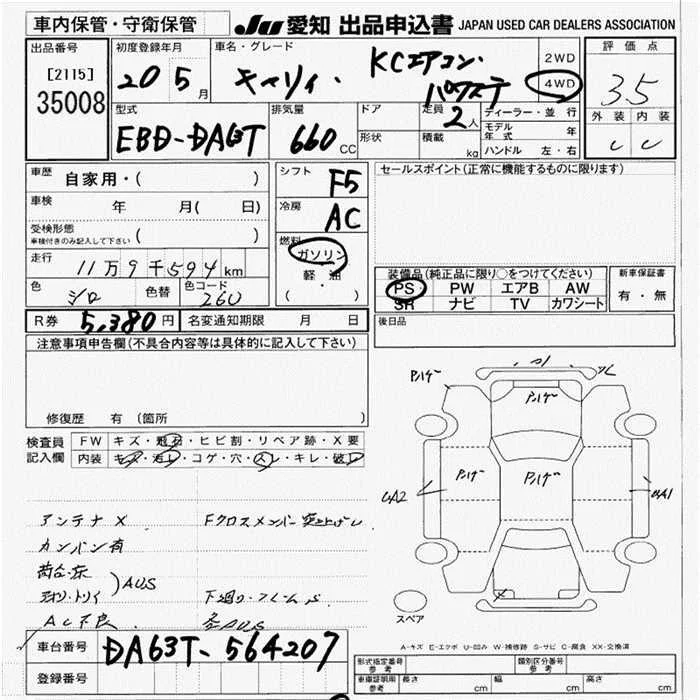 車内保管・守衛保管
JU 愛知 出品申込書 JAPAN USED CAR DEALERS ASSOCIATION
出品番号
[2115]
35008
初度登録年月
20 5月
車名・グレード
キャリィ・ KCエアコン・
パワステ
2WD
4WD
評価点
3.5
外装 内装
C C
型式
EBD-DA63T
排気量
660 CC
ドア
形状
定員
2人
積載
kg
ディーラー・並行
モデル年式 年
ハンドル 左・右
車歴
自家用・( )
車検
年 月( 日)
受検形態
車検付きのみ記入して下さい ( )
走行
11万9千594km
色
シロ
色替
色コード
26U
シフト
F5
冷房
AC
燃料
ガソリン
軽・油
( ・ )
セールスポイント(正常に機能するものに限ります)
装備品(純正品に限り○をつけてください)
PS PW エアB AW
SR ナビ TV カワシート
新車保証書
有・無
R券 5,380円
名変通知期限 月 日
後日品
注意事項申告欄(不具合内容等は具体的に記入して下さい)
修復歴 有 (箇所 )
検査員記入欄
FW キズ・飛石・ヒビ割・リペア跡・X要
内装 キズ・汚レ・コゲ・穴・スレ・キレ・破レ
アンテナX
Fクロスメンバー突上げし
カンバン有
荷台・床
アオリ・トリイ
)AUS
下廻り・フレームS
AC不良
各AUS
UA2
UA1
スペア
A-キズ E-エクボ U-凹み W-補修跡 S-サビ C-腐食 XX-交換済
車台番号
DA63T-564207
登録番号
形式指定番号
参考
類別区分番号
参考
車庫証明用
参考
長さ cm
幅 cm
高さ cm